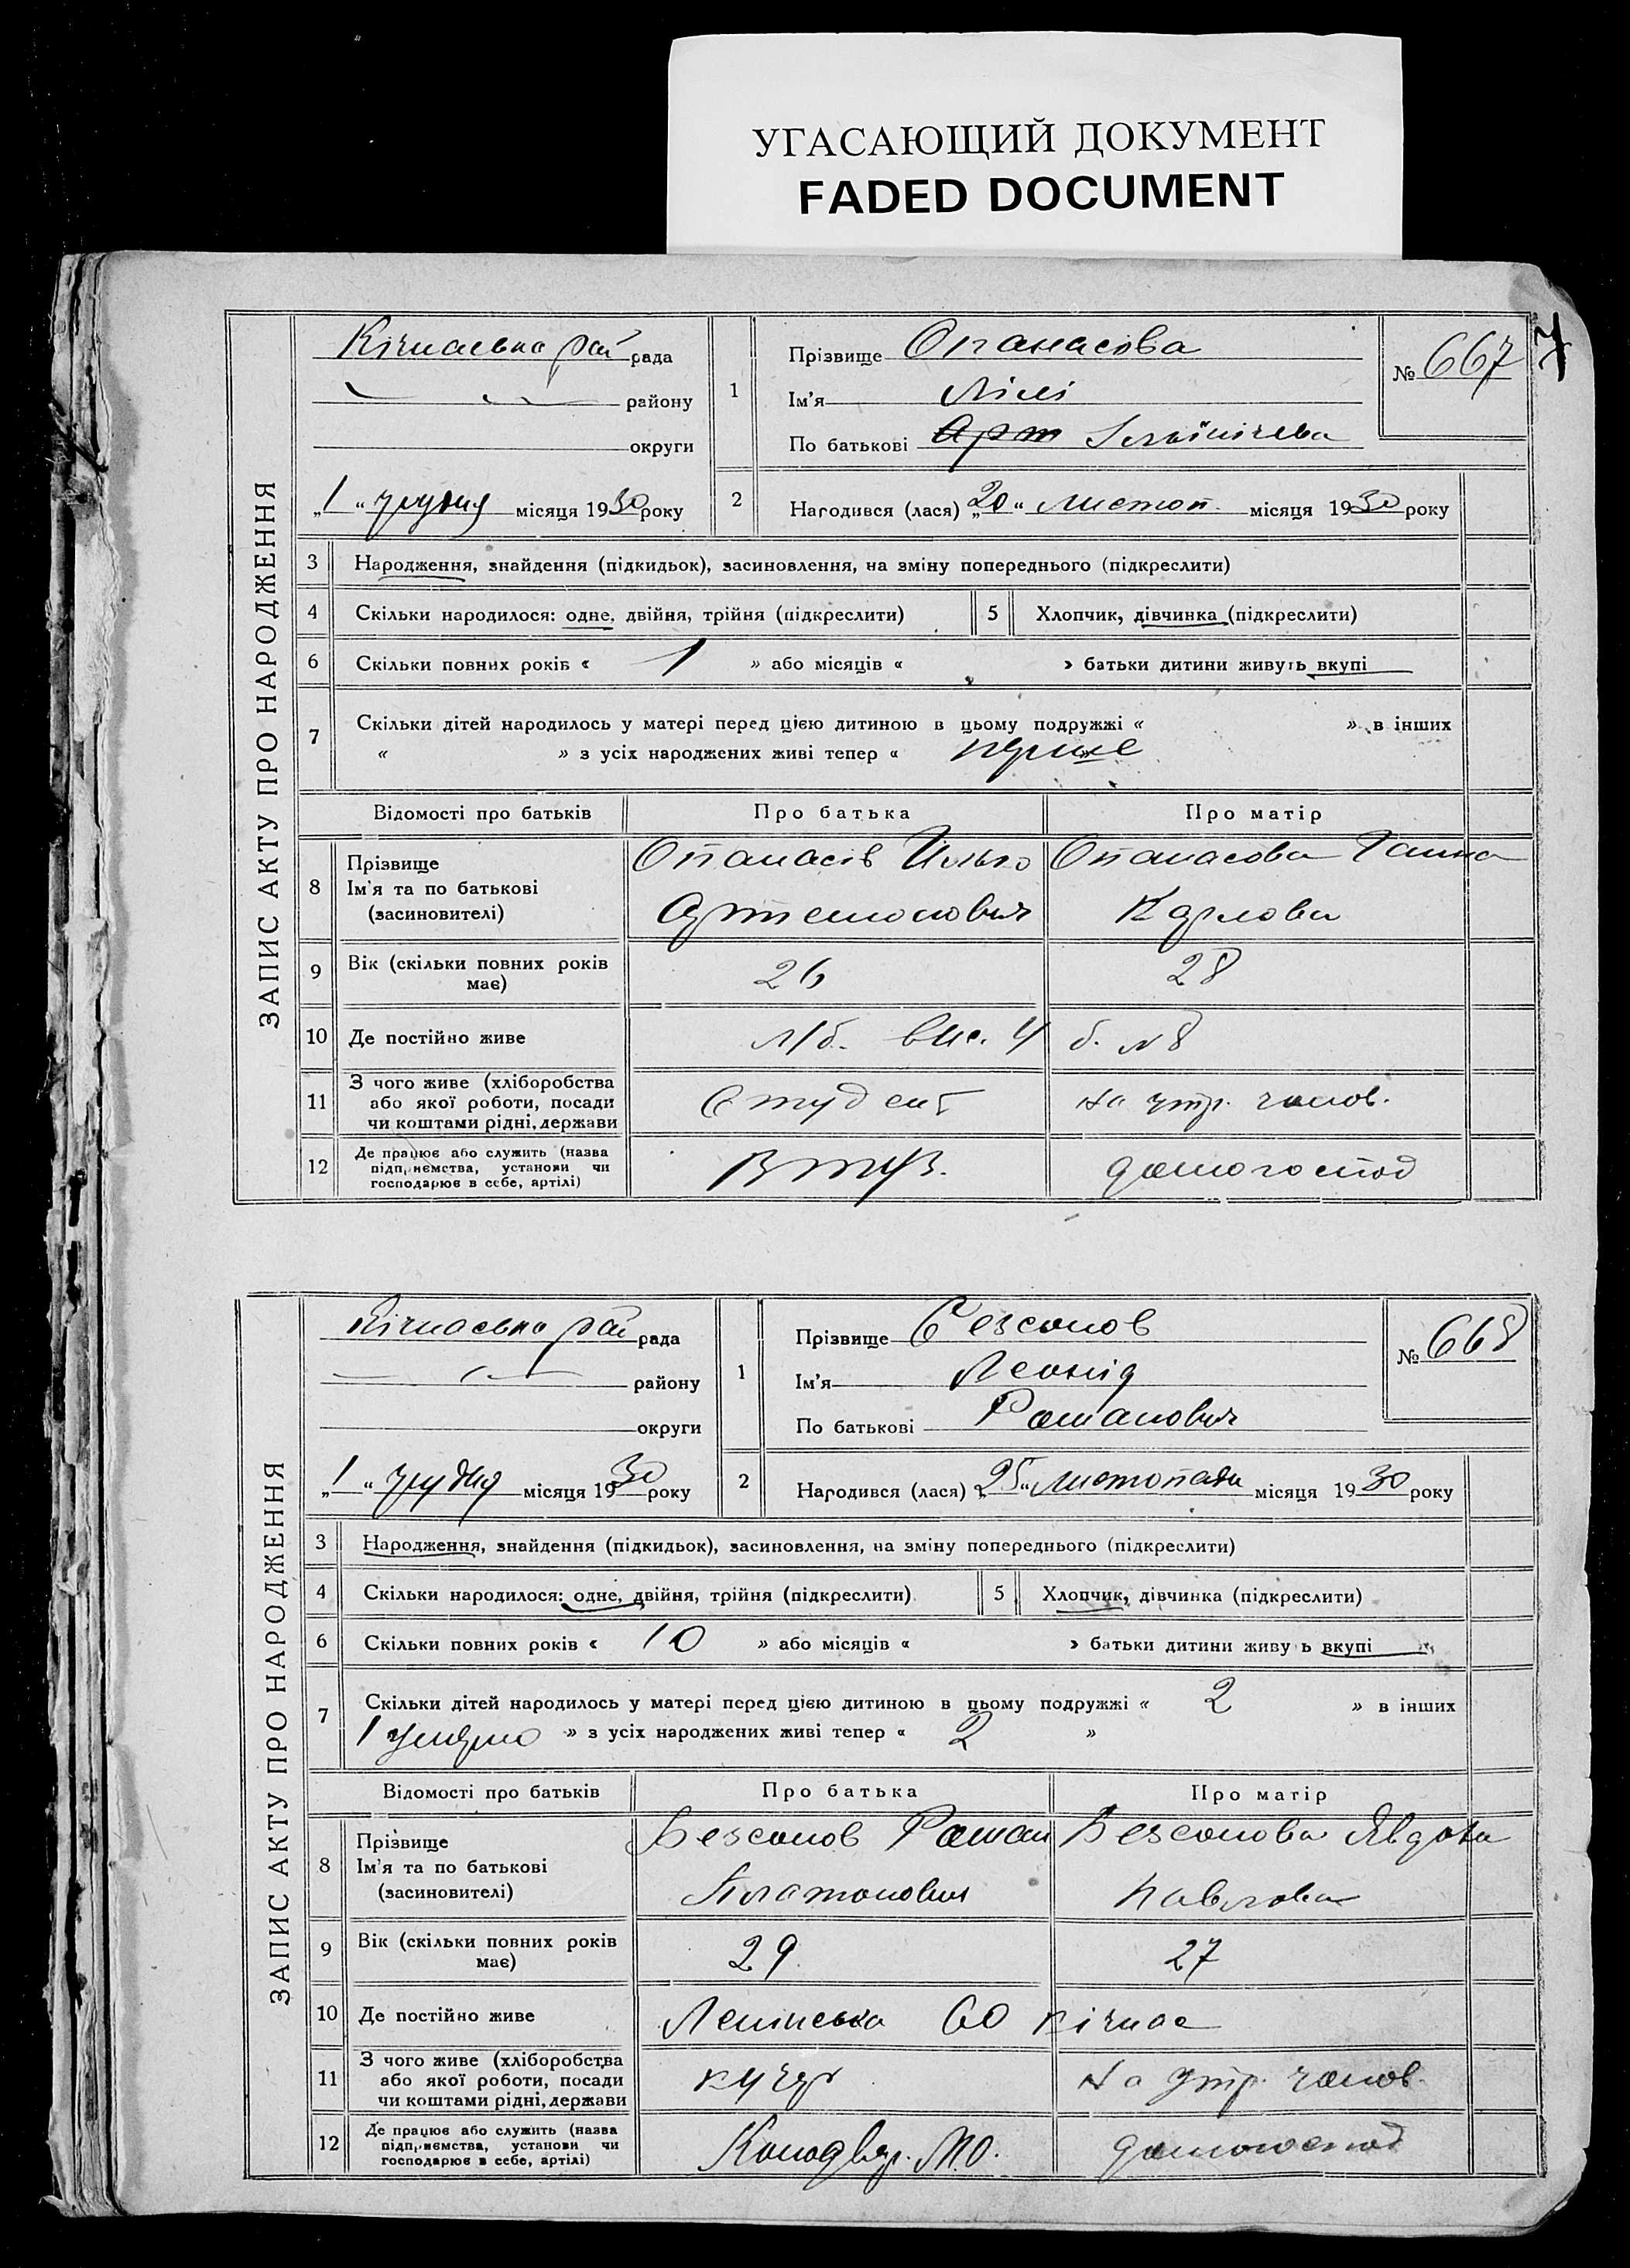 УГАСАЮЩИЙ ДОКУМЕНТ
FADED DOCUMENT
7
ЗАПИС АКТУ ПРО НАРОДЖЕННЯ
Кічкаська рай рада
району
округи
„1“ грудня місяця 1930 року
1
Прізвище Опанасова
Ім'я Лілі
По батькові Арт Ілльїнічева
№ 667
2
Народився (лася) „20“ листоп. місяця 1930 року
3 Народження, знайдення (підкидьок), засиновлення, на зміну попереднього (підкреслити)
4 Скільки народилося: одне, двійня, трійня (підкреслити)
5 Хлопчик, дівчинка (підкреслити)
6 Скільки повних років « 1 » або місяців « » батьки дитини живуть вкупі
7 Скільки дітей народилось у матері перед цією дитиною в цьому подружжі « » в інших
« » з усіх народжених живі тепер « перше
Відомості про батьків Про батька Про матір
8 Прізвище Ім'я та по батькові (засновителі)
Опанасів Илько Опанасова Ганна
Артемонович Карлова
9 Вік (скільки повних років має) 26 28
10 Де постійно живе л/б. вис. 4 б. №8
11 З чого живе (хліборобства або якої роботи, посади чи коштами рідні, держави
Студент На утр. чолов.
12 Де працює або служить (назва підприємства, установи чи господарює в себе, артілі)
ВТУЗ. домогоспод
ЗАПИС АКТУ ПРО НАРОДЖЕННЯ
Кічкаська рай рада
району
округи
„1“ грудня місяця 1930 року
1
Прізвище Безсонов
Ім'я Леонід
По батькові Романович
№ 668
2
Народився (лася) „25“ листопада місяця 1930 року
3 Народження, знайдення (підкидьок), засиновлення, на зміну попереднього (підкреслити)
4 Скільки народилося: одне, двійня, трійня (підкреслити)
5 Хлопчик, дівчинка (підкреслити)
6 Скільки повних років « 10 » або місяців « » батьки дитини живу ь вкупі
7 Скільки дітей народилось у матері перед цією дитиною в цьому подружжі « 2 » в інших
1 умерло » з усіх народжених живі тепер « 2 »
Відомості про батьків Про батька Про матір
8 Прізвище Ім'я та по батькові (засиновителі)
Безсонов Роман Безсонова Явдоха
Платонович Павлова
9 Вік (скільки повних років має) 29 27
10 Де постійно живе Ленінська 60 Кічкас
11 З чого живе (хліборобства або якої роботи, посади чи коштами рідні, держави
кучер На утр. чолов.
12 Де працює або служить (назва підприємства, установи чи господарює в себе, артілі)
М.О. домогоспод